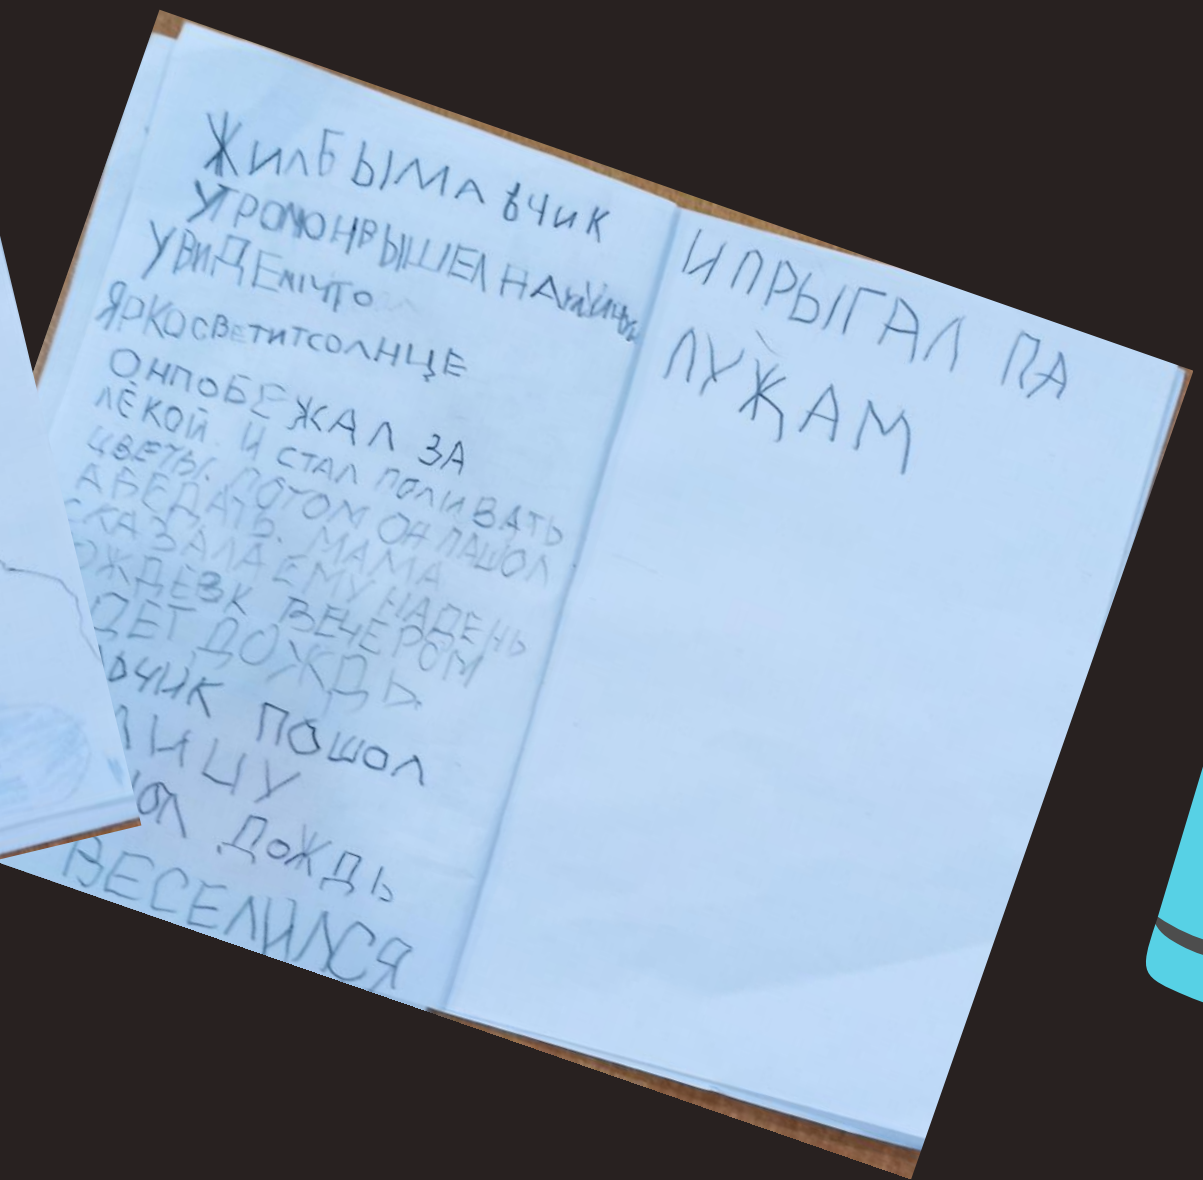 ЖИЛБЫМАВЧИК
УТРОМОНВЫШЕЛ НА
УВИДЕЛ ЧТО
ЯРКОСВЕТИТСОЛНЦЕ
ОНПОБЕЖАЛ ЗА
ЛЁКОЙ. И СТАЛ ПОЛИВАТЬ
ЦВЕТЫ. ПОТОМ ОН ПАШОЛ
АБЕДАТЬ. МАМА
СКАЗАЛА ЕМУ НАДЕНЬ
ОЖДЕВК ВЕЧЕРОМ
ДЕТ ДОЖДЬ.
ЬЧИК ПОШОЛ
ЛИЦУ
ОЛ ДОЖДЬ
ВЕСЕЛИЛСЯ
И ПРЫГАЛ ПА
ЛУЖАМ